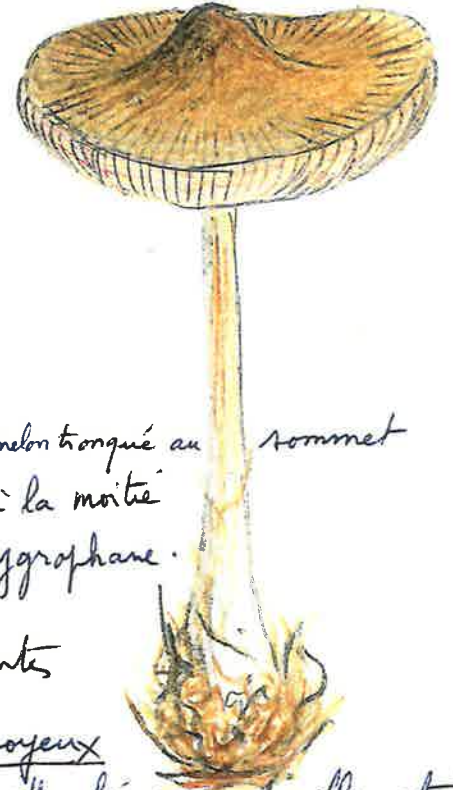 melon tronqué au sommet
à la moitié
ygrophane.
ntes
oyeux